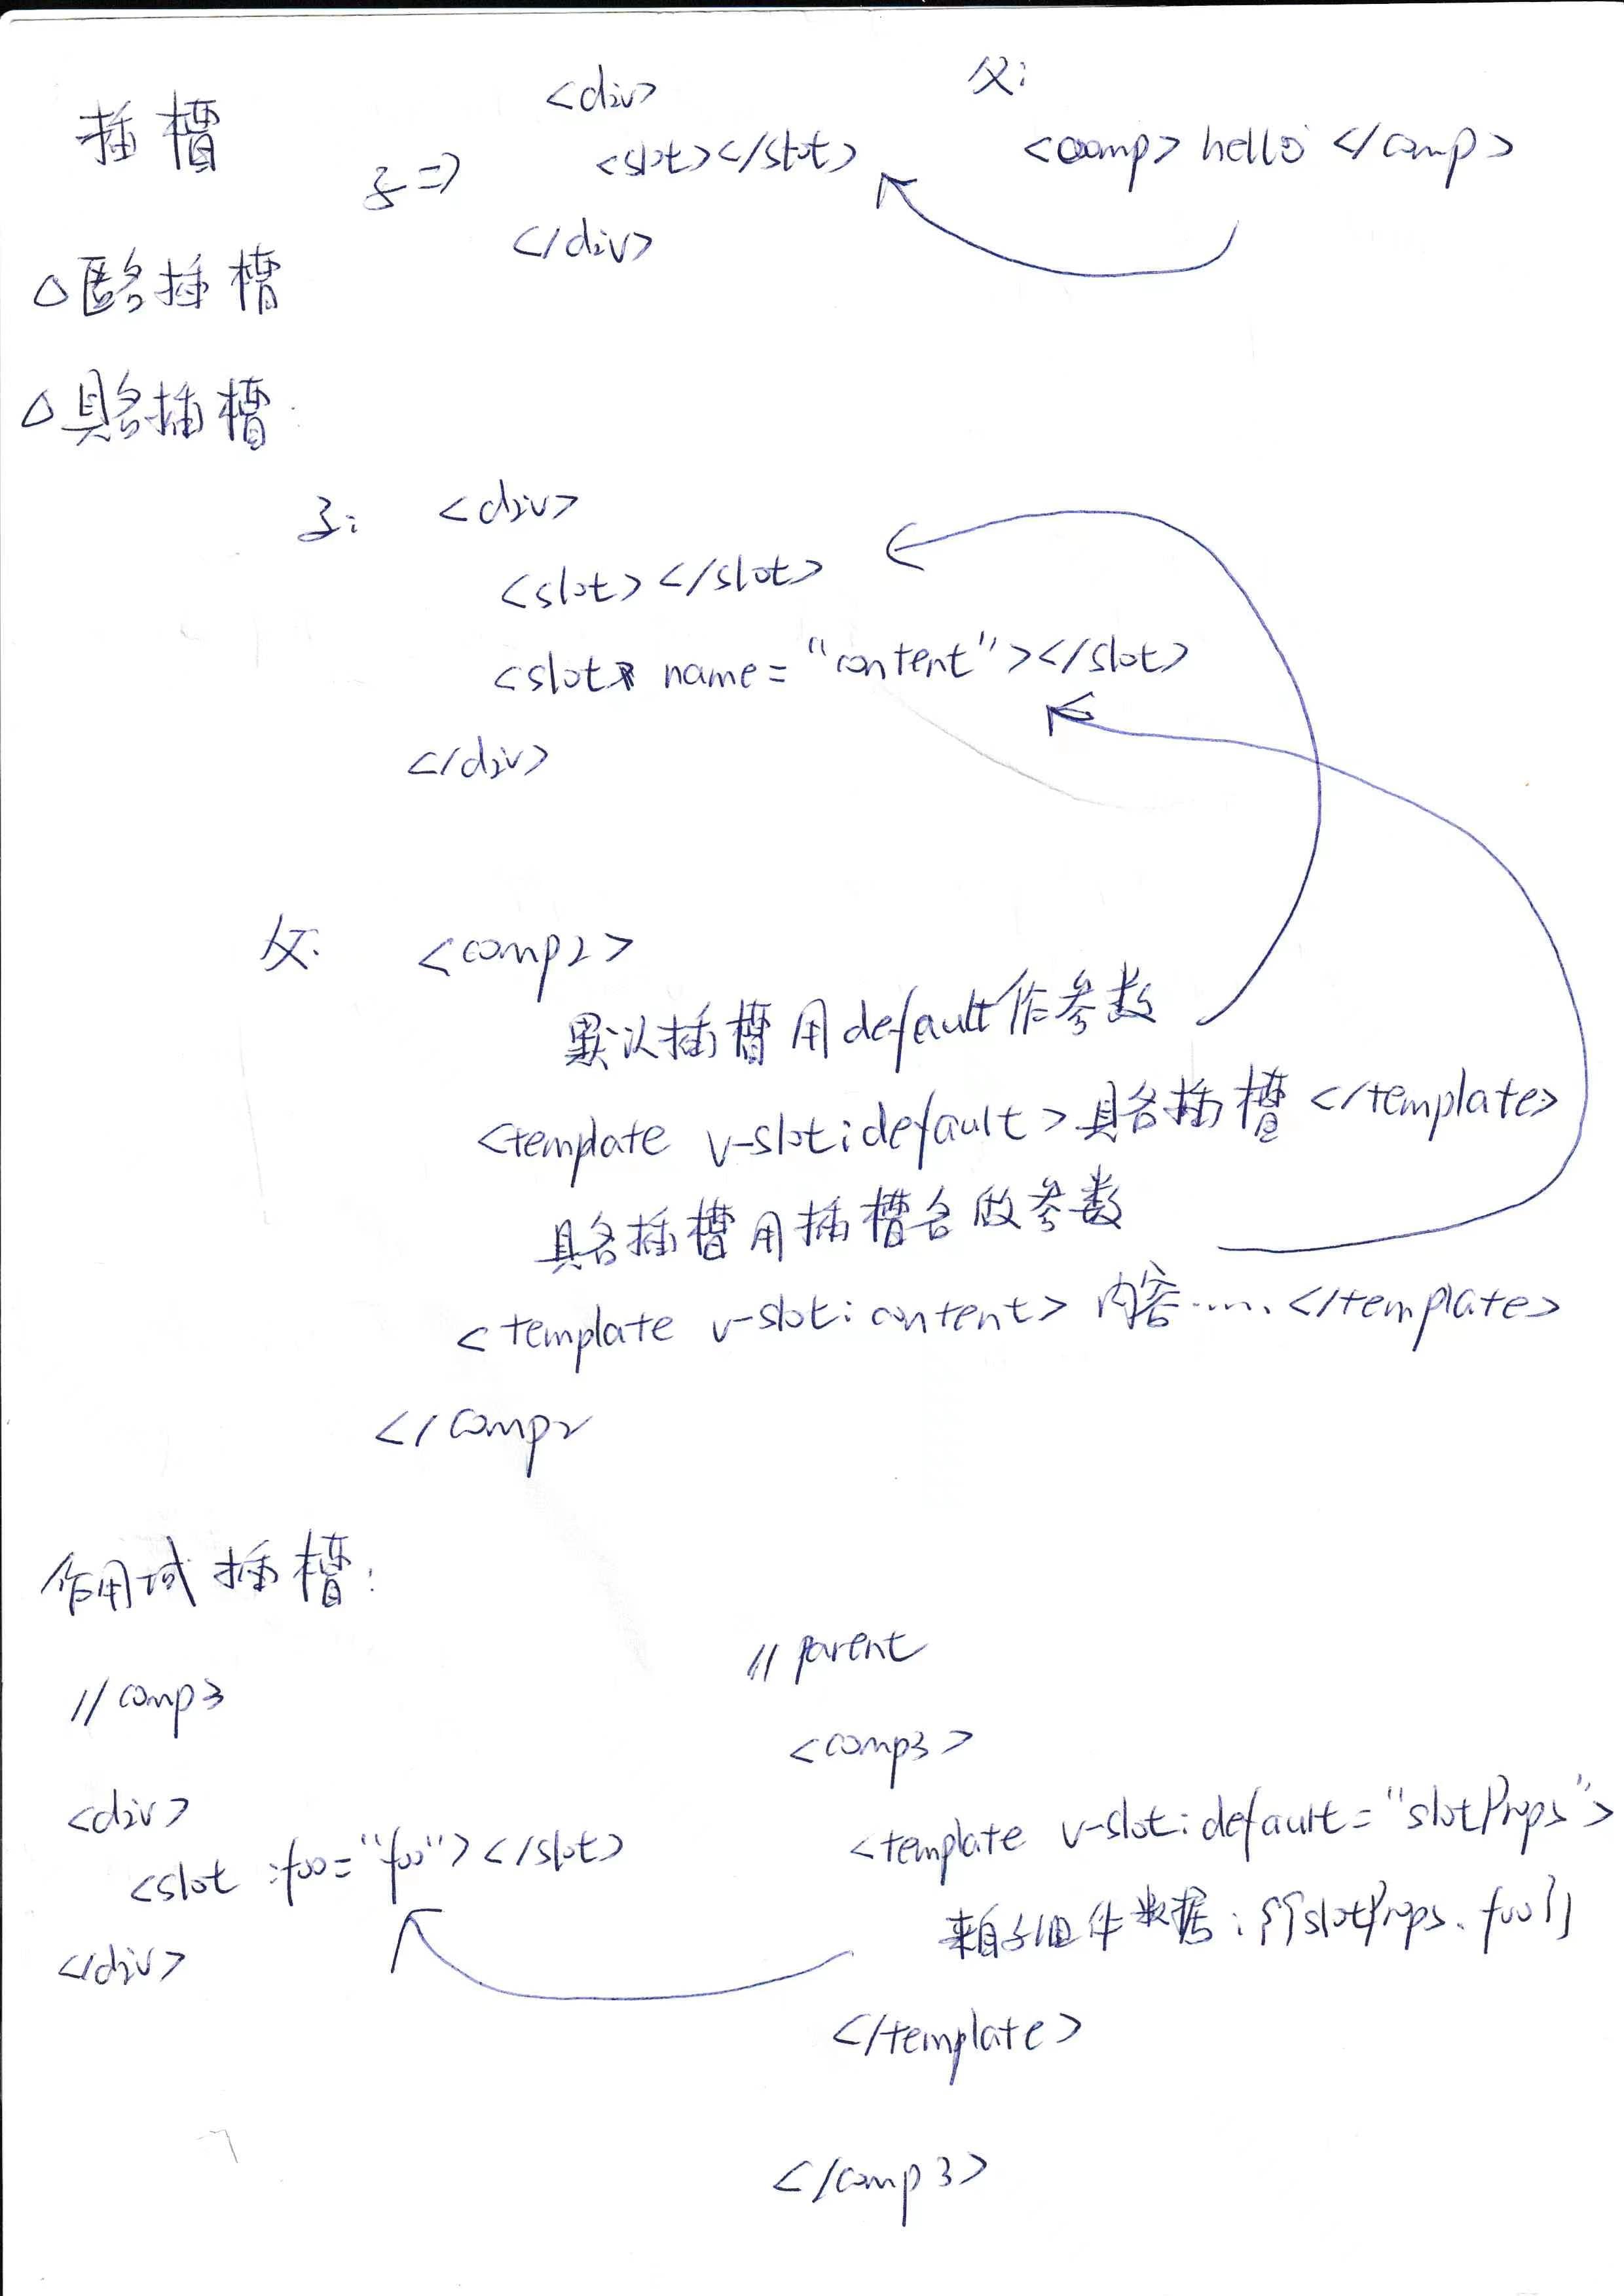 插槽
子=>
<div>
<slot></slot>
</div>
父:
<comp> hello </comp>
△匿名插槽
△具名插槽
子:
<div>
<slot></slot>
<slot name="content"></slot>
</div>
父:
<comp2>
默认插槽用default作参数
<template v-slot:default>具名插槽</template>
具名插槽用插槽名做参数
<template v-slot:content>内容……</template>
</comp2
作用域插槽:
//comp3
<div>
<slot :foo="foo"></slot>
</div>
//parent
<comp3>
<template v-slot:default="slotProps">
来自子组件数据:{{slotProps.foo}}
</template>
</comp3>